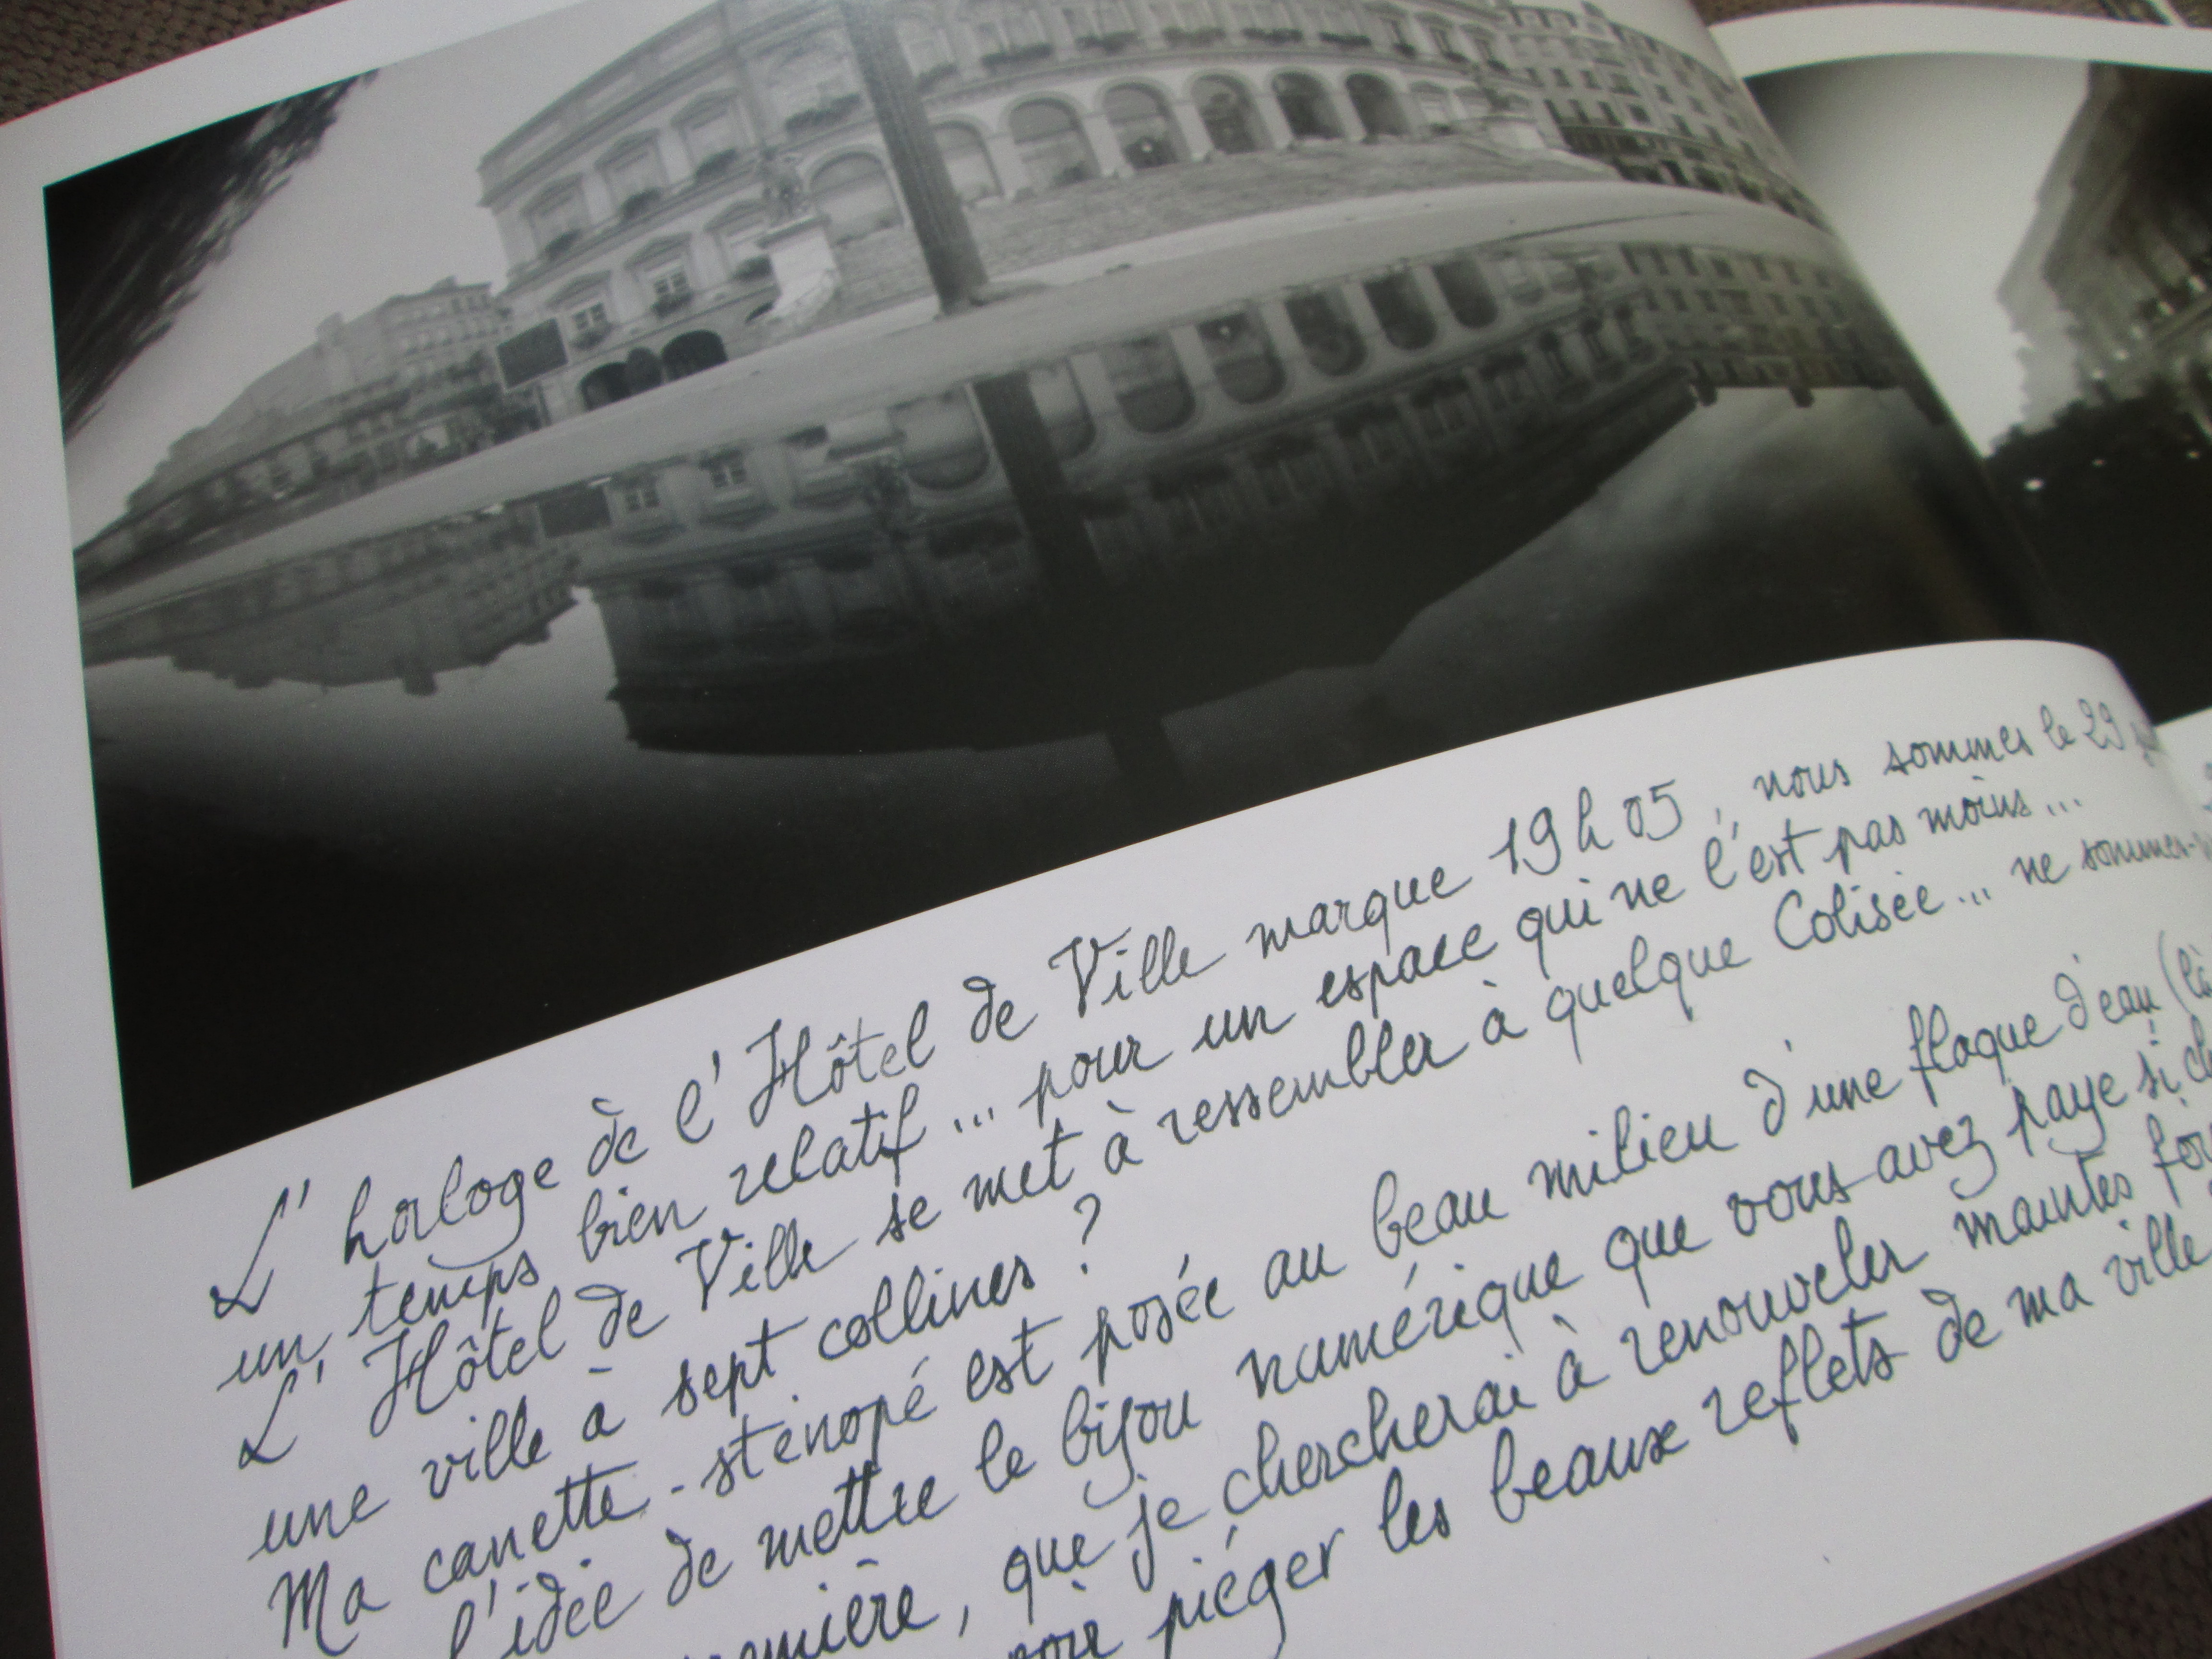 L'horloge de l'Hôtel de Ville marque 19h05, nous sommes le 29
un temps bien relatif... pour un espace qui ne l'est pas moins...
L'Hôtel de Ville se met à ressembler à quelque Colisée... ne sommes-
une ville à sept collines ?
Ma canette-sténopé est posée au beau milieu d'une flaque d'eau (là
l'idée de mettre le bijou numérique que vous avez payé si
, que je chercherai à renouveler maintes
piéger les beaux reflets de ma ville